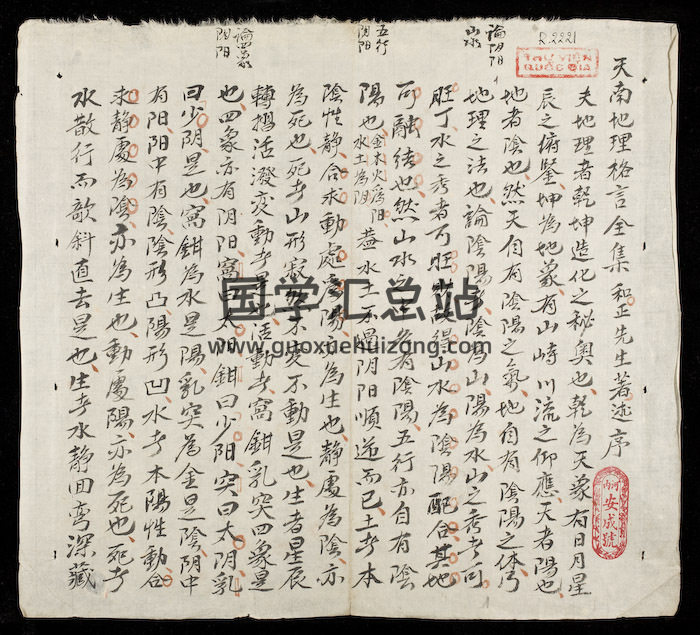 天南地理格言全集 和正先生著述序
夫地理者乾坤造化之秘奥也乾為天象有日月星
辰之俯鍳坤為地象有山峙川流之仰應天者陽也
地者陰也然天自有陰陽之氣地自有陰陽之体乃
地理之法也論陰陽陰為山陽為水山之秀者可
旺丁水之秀者可旺得山水為陰陽配合其地
可融結也然山水之各有陰陽五行亦自有陰
陽也金木火為阳水土為阴盖水土不陽阴阳順逆而已土者本
陰性静合求動處陽為生也静處為陰亦
為死也死者山形寂然不变不動是也生者星辰
轉摺活潑变動者是活動者窩鉗乳突四象是
也四象亦有阴阳窩曰太阳鉗曰少阳突曰太阴乳
曰少阴是也窩鉗為水是陽乳突為金是陰阴中
有阳阳中有陰陰形凸陽形凹水者本陽性動合
求静處為陰亦為生也動處陽亦為死也死者
水散行而歆斜直去是也生者水静回弯深藏
R.2221
THƯ VIỆN
QUỐC GIA
論阴阳
山水
五行
阴阳
論四象
阴阳
河内
安成號
国学汇总站
www.guoxuehuizong.com